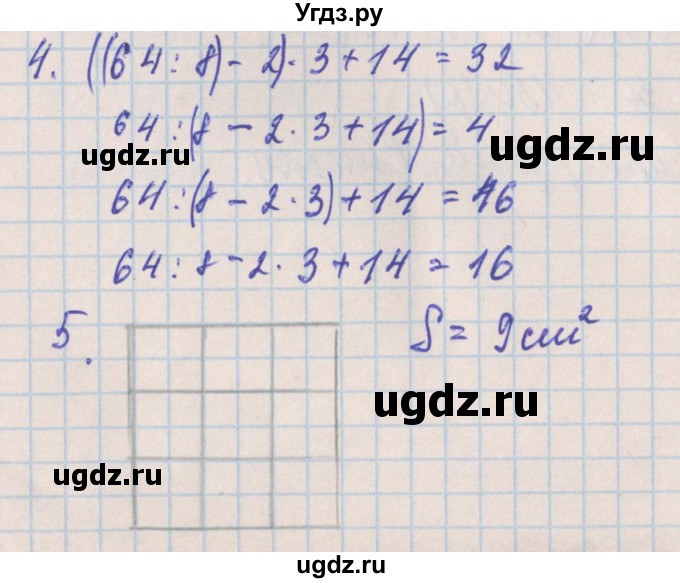 Угдз.ру
4. ((64 : 8) - 2) · 3 + 14 = 32
64 : (8 - 2 · 3 + 14) = 4
ugdz.ru
ugdz.ru
64 : (8 - 2 · 3) + 14 = 46
64 : 8 - 2 · 3 + 14 = 16
5.
S = 9 см²
ugdz.ru
ugdz.ru
ugdz.ru